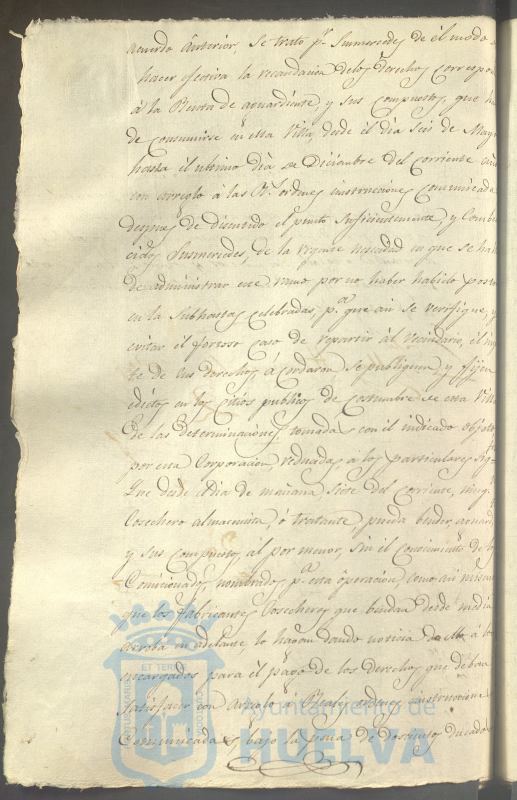 acuerdo anterior, se trato pr. Susmercedes de el modo
hacer efectiva la recaudacion delos derechos correspon
á la Renta de aguardiente, y sus compuestos, que
de consumirse en esta Villa, desde el dia seis de Mayo
hasta el ultimo dia de Diciembre del corriente
con arreglo á las Rs. ordenes instrucciones comunicada
despues de discutido el punto suficientemente, y
Susmercedes, de la necesidad en que se ha
de administrar este ramo, por no haber habido postor
en las Subhastas celebradas, pa. que asi se verifique, y
evitar el forzoso caso de repartir al vecindario, el
te de sus derechos, acordaron se publiquen, y fijen
edictos en los sitios publicos de costumbre de esta Vill
de las determinaciones tomadas con el indicado objeto
por esta Corporacion, reducidas, a los particulares
Que desde el dia de mañana siete del corriente, ning
Cosechero almacenista, ó tratante, pueda bender aguard
y sus compuestos, al por menor, sin el conocimiento de
Comicionados, nombrados pa. esta operacion, como asi mismo
que los fabricantes Cosecheros que bendan desde media
arroba en adelante, lo hagan dando noticia de ello, á los
encargados para el pago de los derechos que deban
satisfacer con arreglo á Reales ordenes instruccione
Comunicadas, bajo la pena de doscientos ducados
Ayuntamiento de
HUELVA